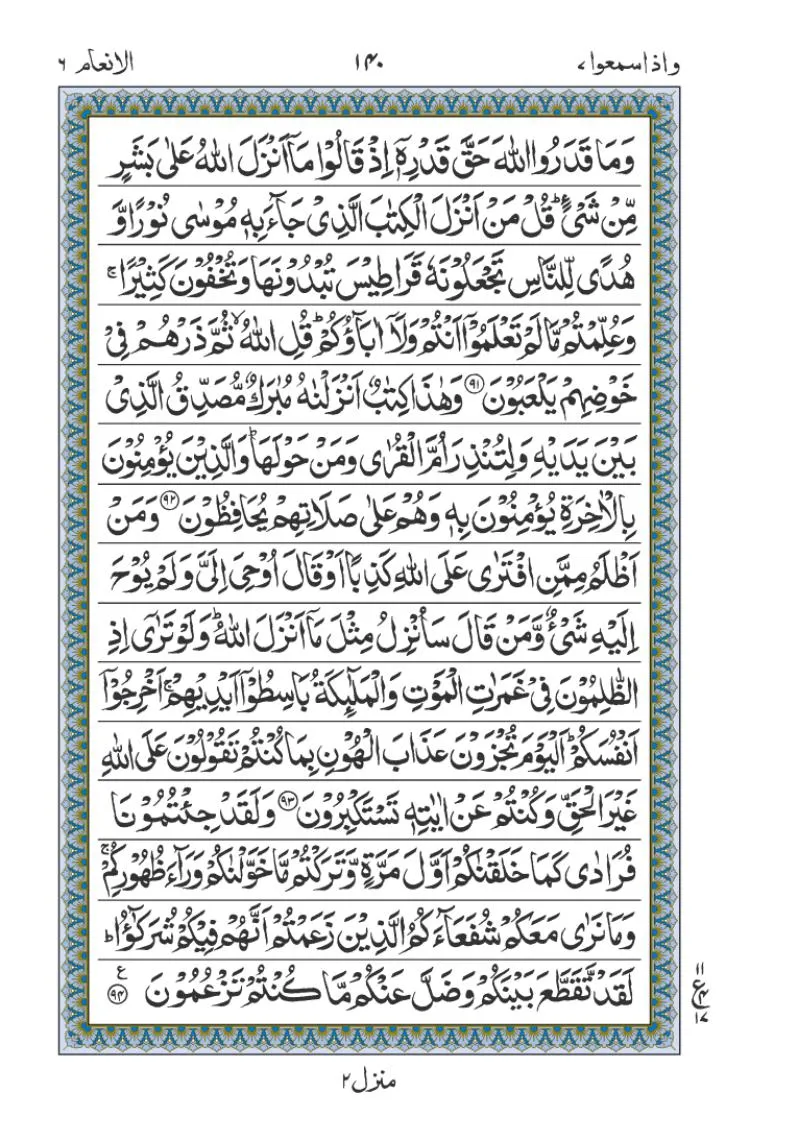 واذاسمعوا ۷ ۱۴۰ الانعام ۶
وَمَا قَدَرُوا اللّٰهَ حَقَّ قَدْرِهٖۤ اِذْ قَالُوْا مَاۤ اَنْزَلَ اللّٰهُ عَلٰى بَشَرٍ
مِّنْ شَیْءٍ ؕ قُلْ مَنْ اَنْزَلَ الْكِتٰبَ الَّذِیْ جَآءَ بِهٖ مُوْسٰى نُوْرًا وَّ
هُدًى لِّلنَّاسِ تَجْعَلُوْنَهٗ قَرَاطِیْسَ تُبْدُوْنَهَا وَتُخْفُوْنَ كَثِیْرًا ۚ
وَعُلِّمْتُمْ مَّا لَمْ تَعْلَمُوْۤا اَنْتُمْ وَلَاۤ اٰبَآؤُكُمْ ؕ قُلِ اللّٰهُ ۙ ثُمَّ ذَرْهُمْ فِیْ
خَوْضِهِمْ یَلْعَبُوْنَ ۹۱ وَهٰذَا كِتٰبٌ اَنْزَلْنٰهُ مُبٰرَكٌ مُّصَدِّقُ الَّذِیْ
بَیْنَ یَدَیْهِ وَلِتُنْذِرَ اُمَّ الْقُرٰى وَمَنْ حَوْلَهَا ؕ وَالَّذِیْنَ یُؤْمِنُوْنَ
بِالْاٰخِرَةِ یُؤْمِنُوْنَ بِهٖ وَهُمْ عَلٰى صَلَاتِهِمْ یُحَافِظُوْنَ ۹۲ وَمَنْ
اَظْلَمُ مِمَّنِ افْتَرٰى عَلَى اللّٰهِ كَذِبًا اَوْ قَالَ اُوْحِیَ اِلَیَّ وَلَمْ یُوْحَ
اِلَیْهِ شَیْءٌ وَّمَنْ قَالَ سَاُنْزِلُ مِثْلَ مَاۤ اَنْزَلَ اللّٰهُ ؕ وَلَوْ تَرٰۤى اِذِ
الظّٰلِمُوْنَ فِیْ غَمَرٰتِ الْمَوْتِ وَالْمَلٰٓىِٕكَةُ بَاسِطُوْۤا اَیْدِیْهِمْ ۚ اَخْرِجُوْۤا
اَنْفُسَكُمْ ؕ اَلْیَوْمَ تُجْزَوْنَ عَذَابَ الْهُوْنِ بِمَا كُنْتُمْ تَقُوْلُوْنَ عَلَى اللّٰهِ
غَیْرَ الْحَقِّ وَكُنْتُمْ عَنْ اٰیٰتِهٖ تَسْتَكْبِرُوْنَ ۹۳ وَلَقَدْ جِئْتُمُوْنَا
فُرَادٰى كَمَا خَلَقْنٰكُمْ اَوَّلَ مَرَّةٍ وَّتَرَكْتُمْ مَّا خَوَّلْنٰكُمْ وَرَآءَ ظُهُوْرِكُمْ ۚ
وَمَا نَرٰى مَعَكُمْ شُفَعَآءَكُمُ الَّذِیْنَ زَعَمْتُمْ اَنَّهُمْ فِیْكُمْ شُرَكٰٓؤُا ؕ
لَقَدْ تَّقَطَّعَ بَیْنَكُمْ وَضَلَّ عَنْكُمْ مَّا كُنْتُمْ تَزْعُمُوْنَ ۹۴ ع
۱۱
ع ۴
۱۷
منزل ۲